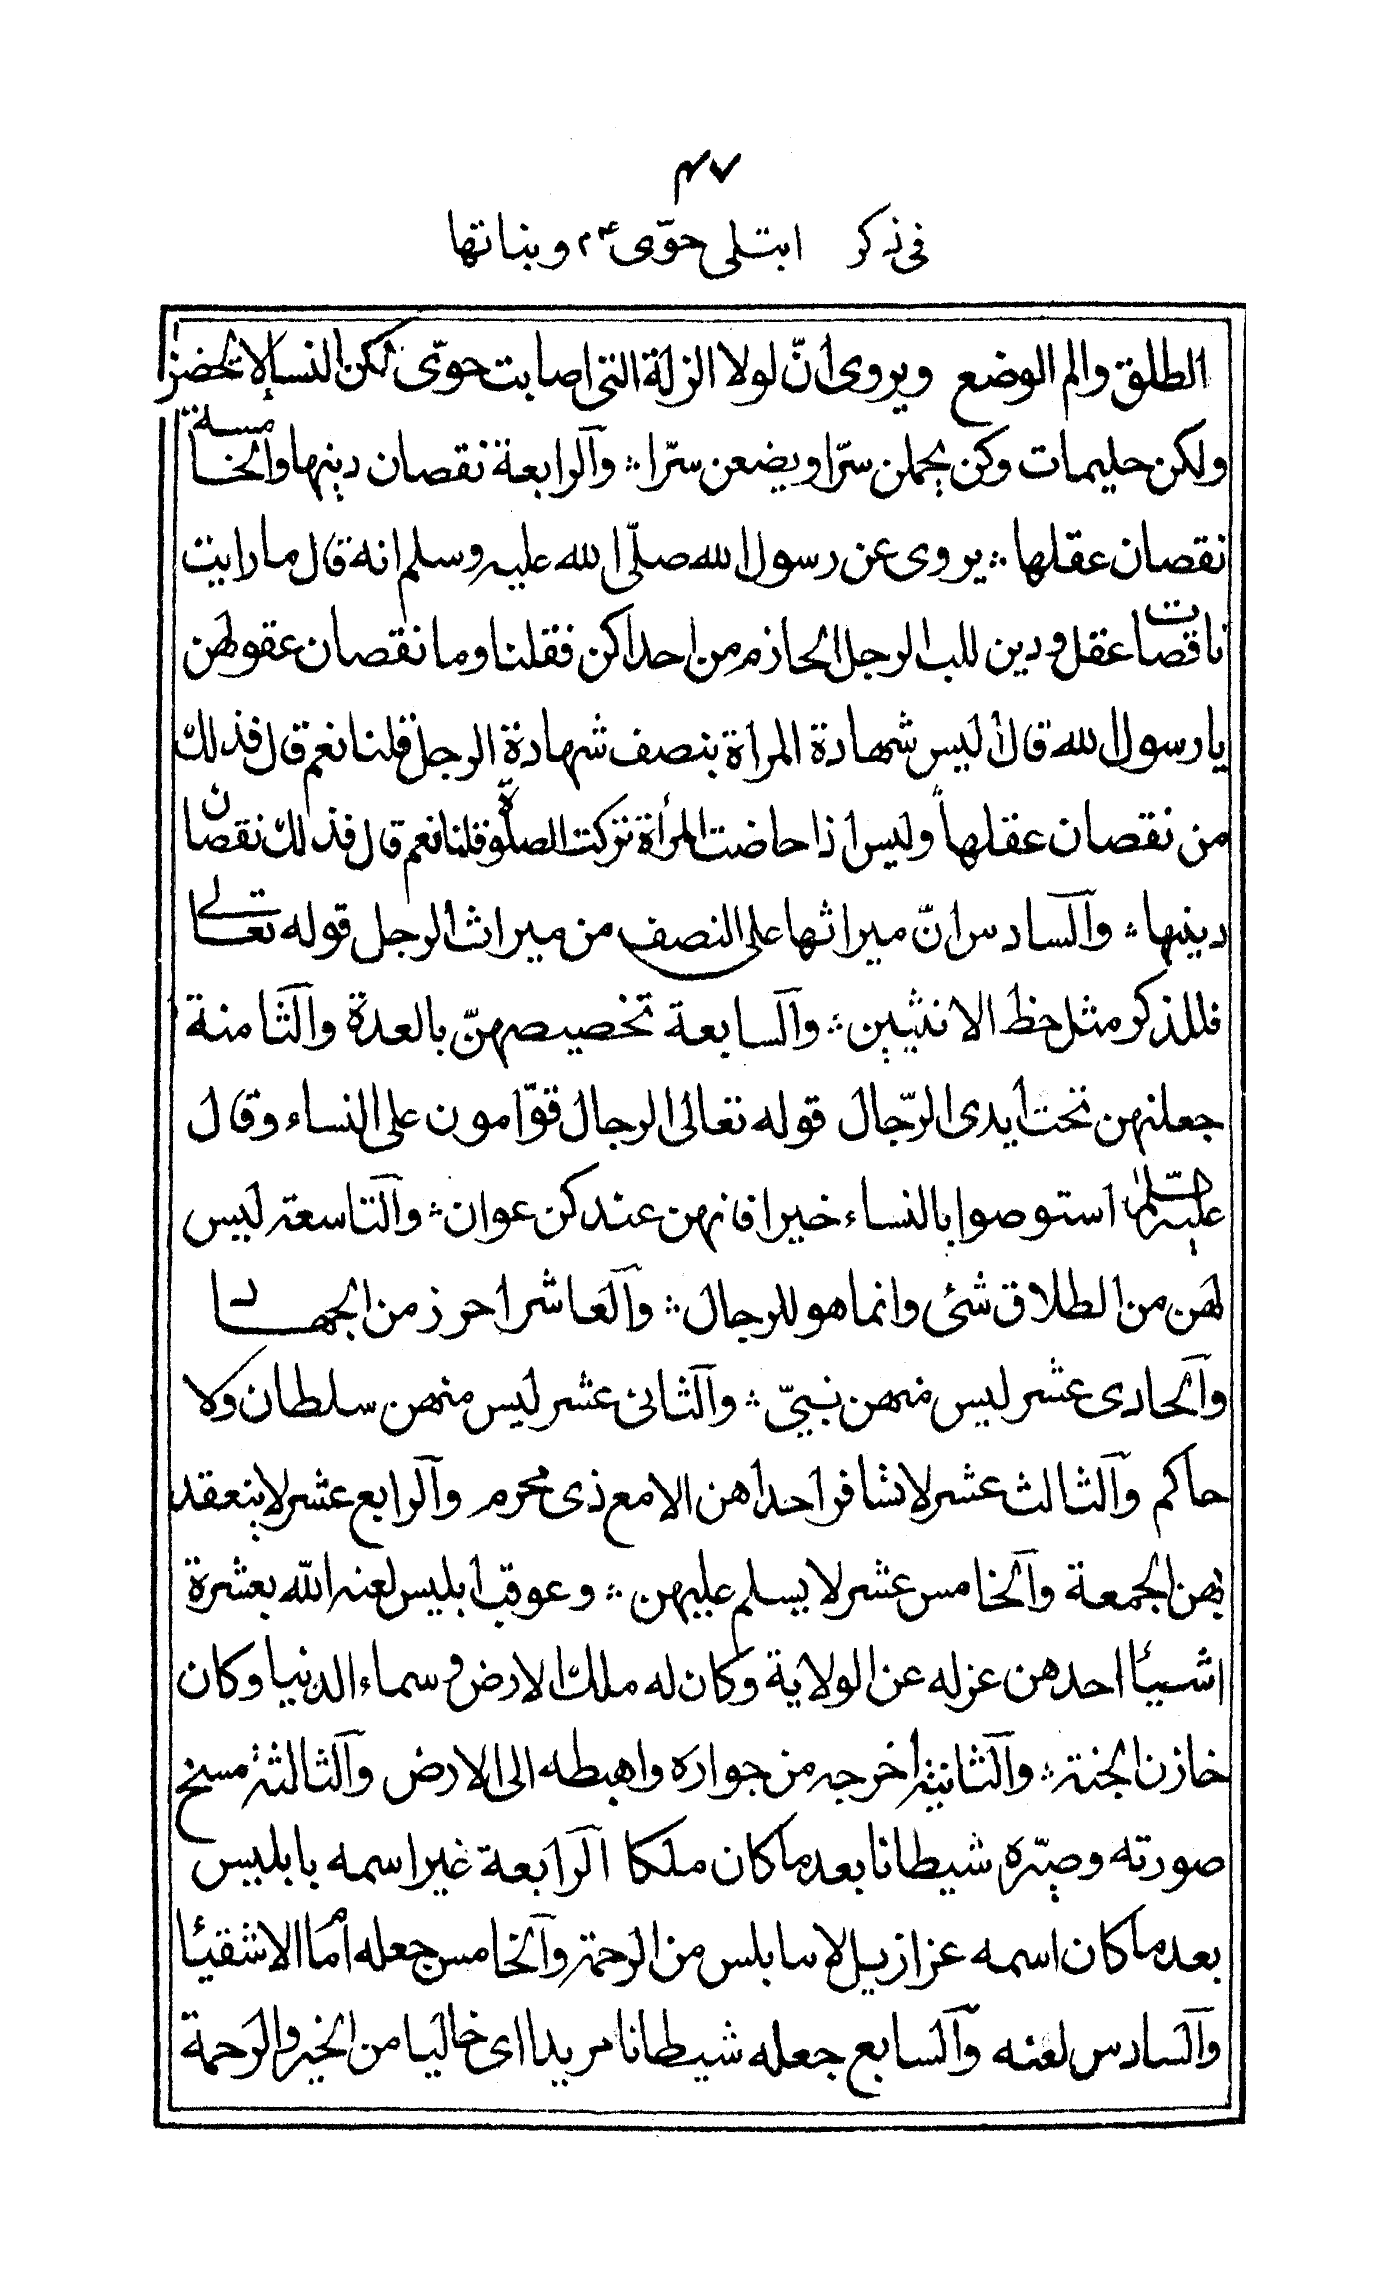 ٤٧
فى ذكر ابتلى حوّى ٤م وبناتها
الطلق والم الوضع ويروى انّ لولا الزلة التى اصابت حوّى لكن النسا لا يحضن
ولكن حليمات وكن يحملن سرّا ويضعن سرّا ؞ والرابعة نقصان دينها والخامسة
نقصان عقلها ؞ يروى عن رسول الله صلّى الله عليه وسلم انه قال ما رايت
ناقصات عقل ودين للب الرجل الحازم من احداكن فقلنا وما نقصان عقولهن
يا رسول الله قال أليس شهادة المراة بنصف شهادة الرجل قلنا نعم قال فذلك
من نقصان عقلها وليس اذا حاضت المرأة تركت الصلوة قلنا نعم قال فذلك نقصان
دينها ؞ والسادس انّ ميراثها على النصف من ميراث الرجل قوله تعالى
فللذكر مثل حظ الانثيين ؞ والسابعة تخصيصهنّ بالعدة والثامنة
جعلنهن تحت أيدى الرّجال قوله تعالى الرجال قوّامون على النساء وقال
عليه السلم استوصوا بالنساء خيرا فانهن عندكن عوان ؞ والتاسعة ليس
لهن من الطلاق شئ وانما هو للرجال ؞ والعاشر احرز من الجهاد
والحادى عشر ليس منهن نبيّ ؞ والثانى عشر ليس منهن سلطان ولا
حاكم والثالث عشر لا تشافر احداهن الا مع ذى محرم والرابع عشر لا يتعقد
بهن الجمعة والخامس عشر لا يسلم عليهن ؞ وعوقب ابليس لعنه الله بعشرة
اشيئا احدهن عزله عن الولاية وكان له ملك الارض و سماء الدنيا وكان
خازن الجنة ؞ والثانية أخرجه من جواره واهبطه الى الارض والثالثة مسخ
صورته وصيّره شيطانا بعد ما كان ملكا الرابعة غير اسمه بابليس
بعد ما كان اسمه عزازيل لا سابلس من الرحمة والخامس جعله أمام الاشقيئا
والسادس لعنه والسابع جعله شيطانا مريدا اى خاليا من الخير والرحمة